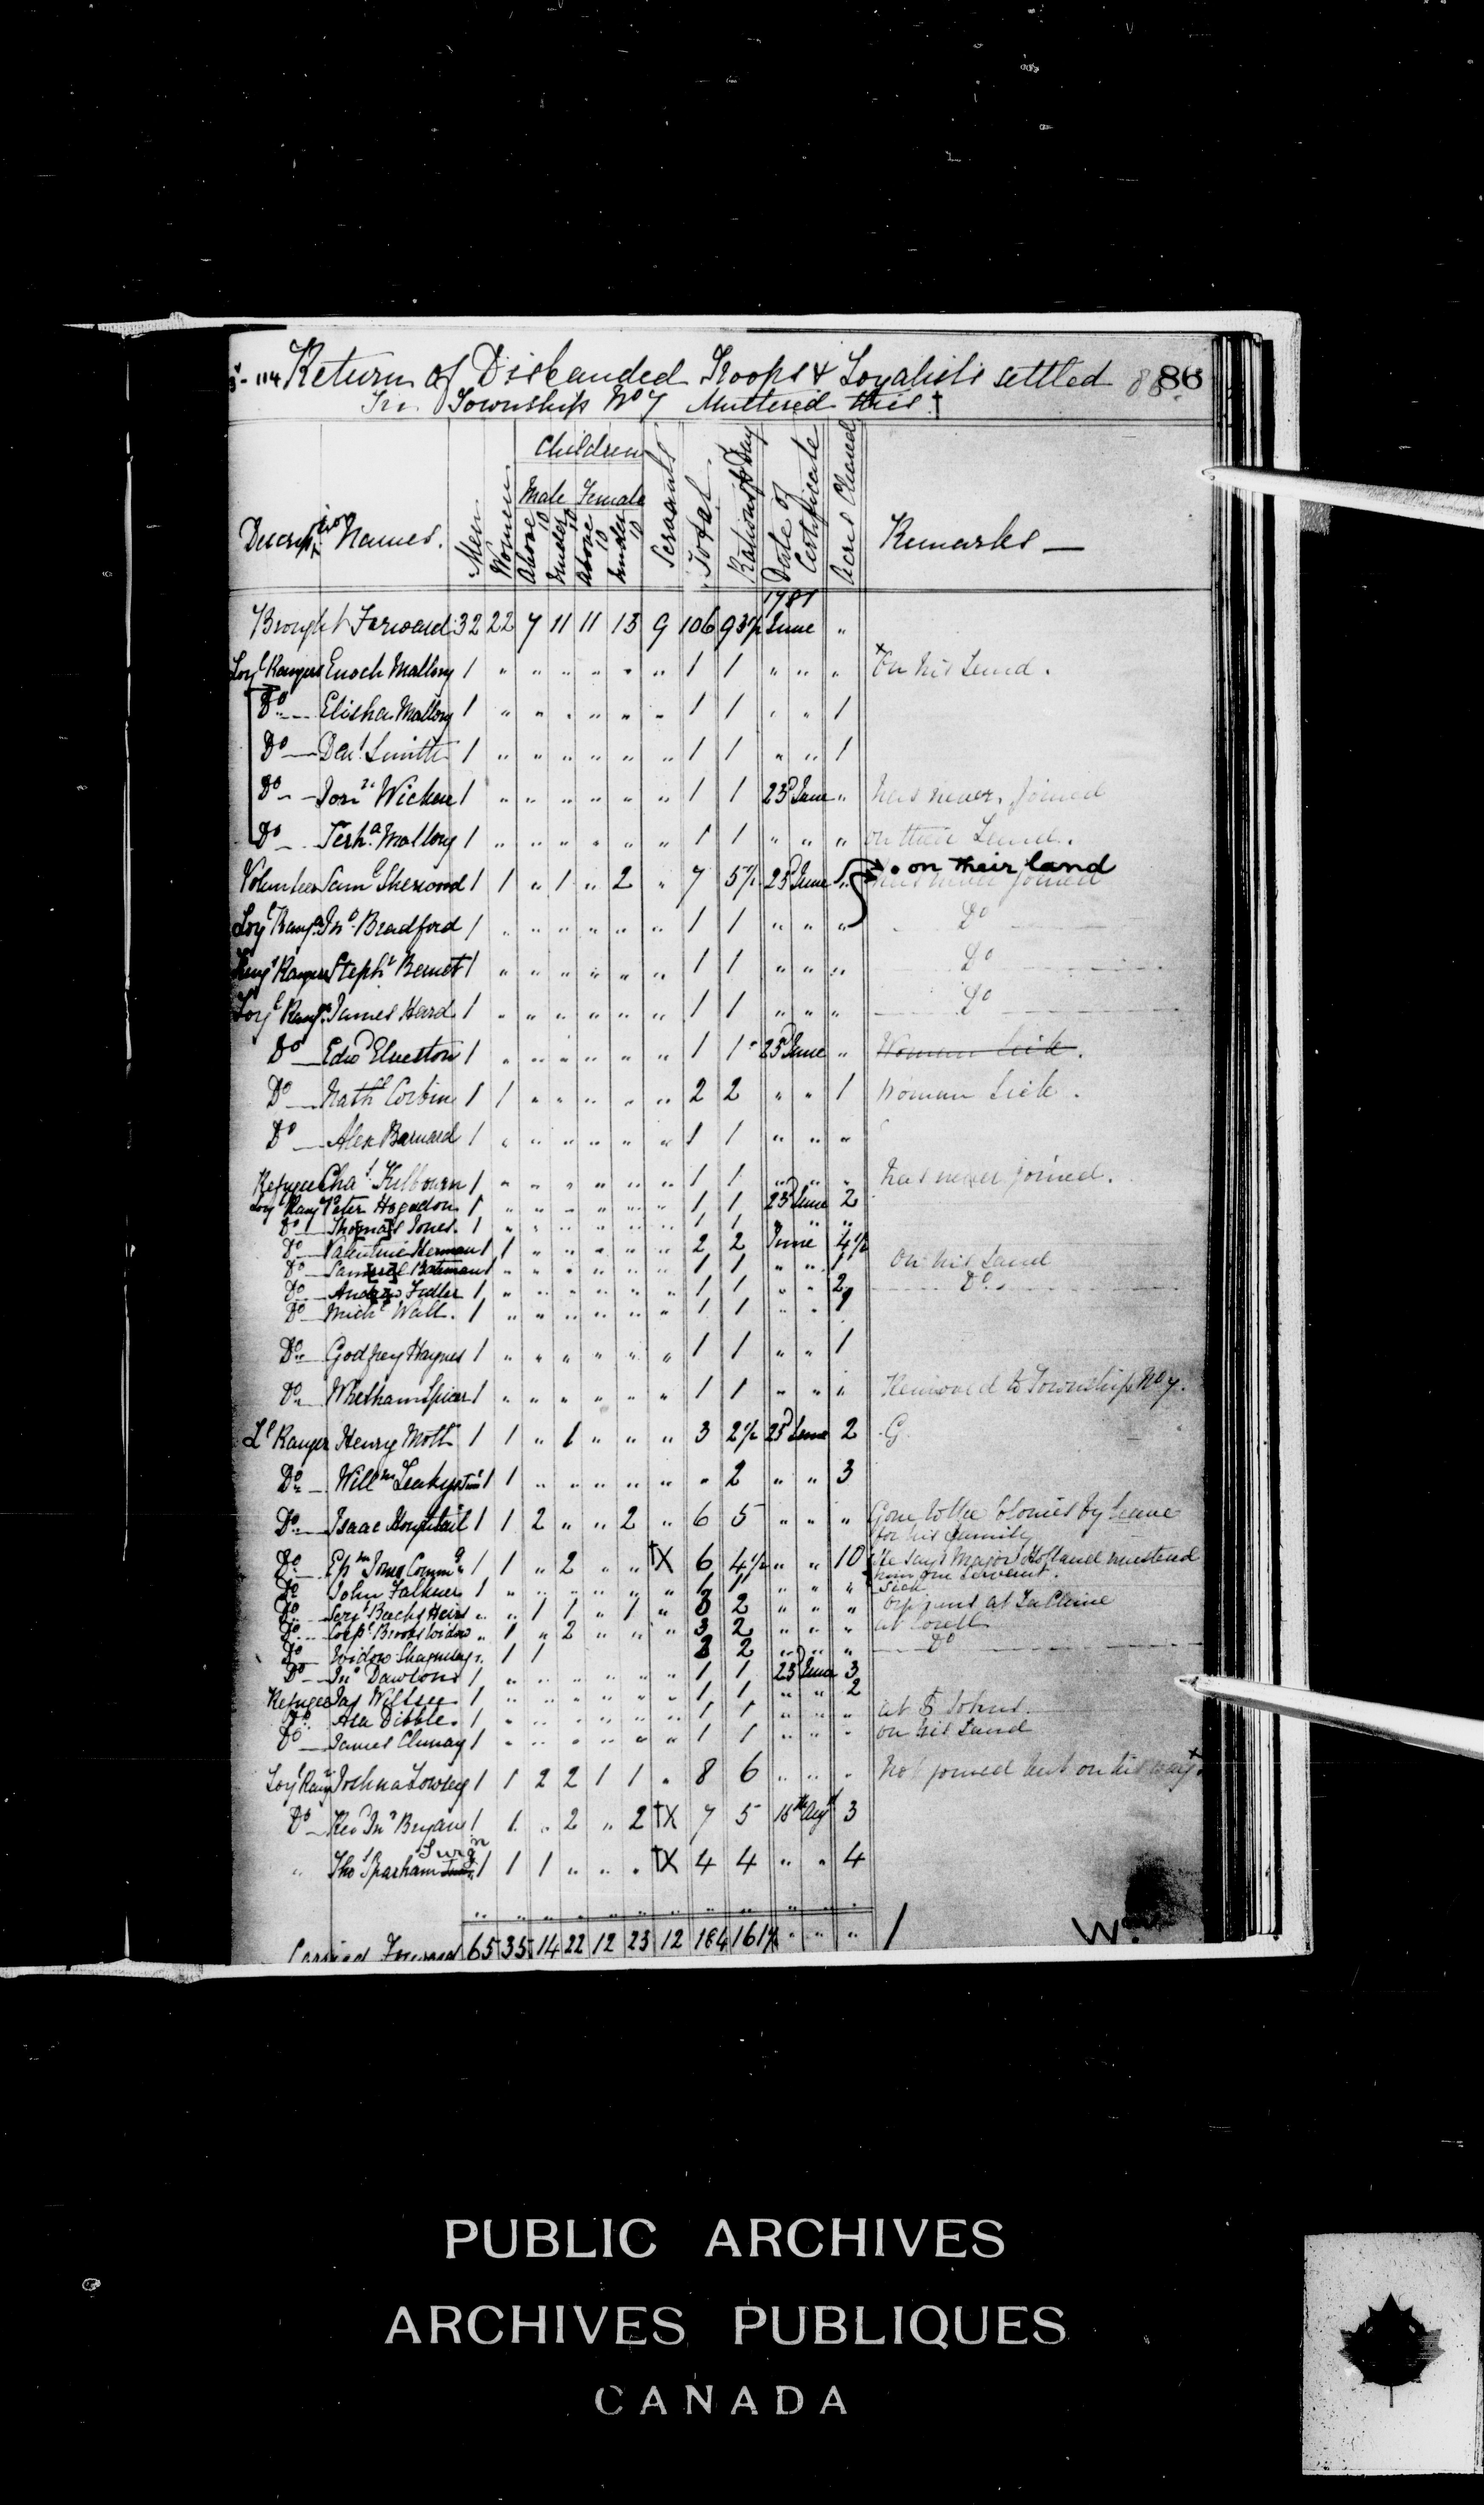 Return of Disbanded Troops & Loyalists settled 86
In Township No 7 Mustered this †
Descript.ion Names. Men Women Children Male Female above 10 under 10 above 10 under 10 Servants Total Rations ⅌ Day Date of Certificate Acres Cleared Remarks —
1781
Brought Forward 32 22 7 11 11 13 9 106 93½ June "
Loyl Rangers Enoch Mallory 1 " " " " " " 1 1 " " " On his Land.
Do Elisha Mallory 1 " " " " " " 1 1 " " 1
Do Danl Smith 1 " " " " " " 1 1 " " 1
Do Jonn Wickens 1 " " " " " " 1 1 23d June " has never joined
Do Jerha Mallory 1 " " " " " " 1 1 " " " on their Land.
on their land
Volunteer Saml Sherwood 1 1 " 1 " 2 " 7 5½ 23d June " has never joined
Loyl Rangrs Jno Bradford 1 " " " " " " 1 1 " " " Do
Kings Rangers Stephn Bennet 1 " " " " " " 1 1 " " " Do
Loyl Rangrs James Hard 1 " " " " " " 1 1 " " " Do
Do Edwd Elveston 1 " " " " " " 1 1 23d June " Woman Sick.
Do Nathl Corbin 1 1 " " " " " 2 2 " " 1 Woman Sick.
Do Alex Barnard 1 " " " " " " 1 1 " " "
Refugee Chas Kilbourn 1 " " " " " " 1 1 " " " has never joined.
Loyl Rangr Peter Hogadon 1 " " " " " " 1 1 23d June 2
Do Thomas Jones. 1 " " " " " " 1 1 " " "
Do Valentine Herman 1 1 " " " " " 2 2 June 4½
Do Samuel Bateman 1 " " " " " " 1 1 " " 1 On his Land
Do Andrew Fidler 1 " " " " " " 1 1 " " 2 Do
Do Michl Wall. 1 " " " " " " 1 1 " "
Do Godfrey Haynes 1 " " " " " " 1 1 " " 1
Do Whetham Spicer 1 " " " " " " 1 1 " " " Removed to Township No 7.
Ll Ranger Henry Moth 1 1 " 1 " " " 3 2½ 23d June 2 G
Do Willm 1 1 " " " " " " 2 " " 3
Do Isaac 1 1 2 " " 2 " 6 5 " " " Gone to the Colonies by leave
for his family
Do Epm Jones Commy 1 1 " 2 " " †X 6 4½ " " 10 He says Major Holland mustered
him one Servant.
Do John Falkner 1 " " " " " " 1 1 " " " Sick
Do Serjt Bachs Heirs " " 1 1 " 1 " 3 2 " " " at La Chine
Do Corpl Brooks Widow " 1 " 2 " " " 3 2 " " " at Sorell
Do Widow " 1 1 2 " " " Do
Do Jno Dawson 1 " " " " " " 1 1 23d June 3
Refugee Jas Wiltsee 1 " " " " " " 1 1 " " 2
Do Asa Dibble. 1 " " " " " " 1 1 " " " at St Johns.
Do James Clunay 1 " " " " " " 1 1 " " " on his Land
Loyl Rangr Joshua Losley 1 1 2 2 1 1 " 8 6 " " " Not joined but on his way.
Do Revd Jno Bryan 1 1 " 2 " 2 †X 7 5 16th Augt 3
Surgn
" Thos Sparham 1 1 1 " " " †X 4 4 " " 4
Carried Forward 65 35 14 22 12 23 12 184 161½ " " "
PUBLIC ARCHIVES
ARCHIVES PUBLIQUES
CANADA